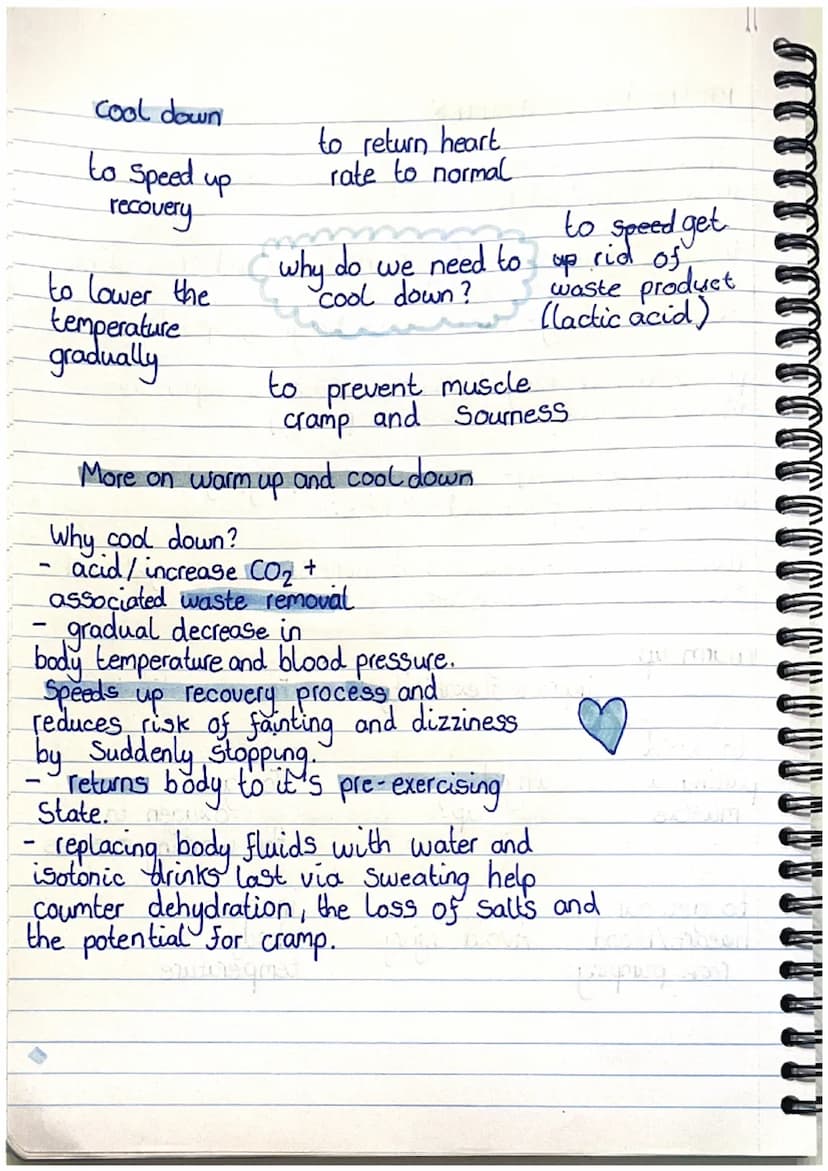 Cool down
to return heart
rate to normal
to Speed up
recovery
to speed get
up rid of
waste product
(lactic acid)
why do we need to
cool down?
to lower the
temperature
gradually
to prevent muscle
cramp and Sourness
More on warm up and cool down
Why cool down?
- acid/increase CO₂ +
associated waste removal
- gradual decrease in
body temperature and blood pressure.
Speeds up recovery process and
reduces risk of fainting and dizziness
by Suddenly stopping.
- returns body to it's pre-exercising
State.
- replacing body fluids with water and
isotonic drinks last via Sweating help
counter dehydration, the loss of salts and
the potential for cramp.